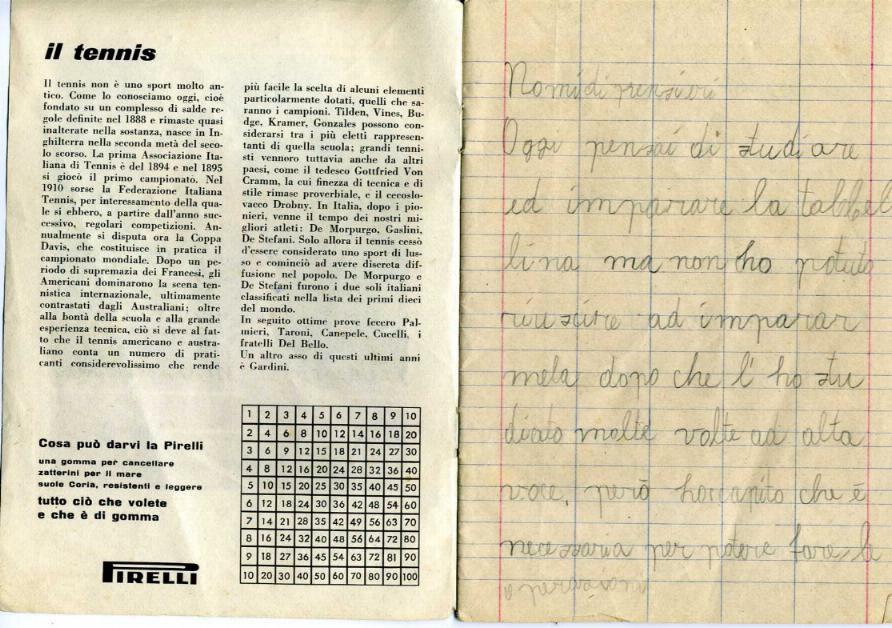 il tennis
Il tennis non è uno sport molto an-
tico. Come lo conosciamo oggi, cioé
fondato su un complesso di salde re-
gole definite nel 1888 e rimaste quasi
inalterate nella sostanza, nasce in In-
ghilterra nella seconda metà del seco-
lo scorso. La prima Associazione Ita-
liana di Tennis è del 1894 e nel 1895
si giocò il primo campionato. Nel
1910 sorse la Federazione Italiana
Tennis, per interessamento della qua-
le si ebbero, a partire dall'anno suc-
cessivo, regolari competizioni. An-
nualmente si disputa ora la Coppa
Davis, che costituisce in pratica il
campionato mondiale. Dopo un pe-
riodo di supremazia dei Francesi, gli
Americani dominarono la scena ten-
nistica internazionale, ultimamente
contrastati dagli Australiani; oltre
alla bontà della scuola e alla grande
esperienza tecnica, ciò si deve al fat-
to che il tennis americano e austra-
liano conta un numero di prati-
canti considerevolissimo che rende
più facile la scelta di alcuni elementi
particolarmente dotati, quelli che sa-
ranno i campioni. Tilden, Vines, Bu-
dge, Kramer, Gonzales possono con-
siderarsi tra i più eletti rappresen-
tanti di quella scuola; grandi tenni-
sti vennero tuttavia anche da altri
paesi, come il tedesco Gottfried Von
Cramm, la cui finezza di tecnica e di
stile rimase proverbiale, e il cecoslo-
vacco Drobny. In Italia, dopo i pio-
nieri, venne il tempo dei nostri mi-
gliori atleti: De Morpurgo, Gaslini,
De Stefani. Solo allora il tennis cessò
d'essere considerato uno sport di lus-
so e cominciò ad avere discreta dif-
fusione nel popolo. De Morpurgo e
De Stefani furono i due soli italiani
classificati nella lista dei primi dieci
del mondo.
In seguito ottime prove fecero Pal-
mieri, Taroni, Canepele, Cucelli, i
fratelli Del Bello.
Un altro asso di questi ultimi anni
è Gardini.
Cosa può darvi la Pirelli
una gomma per cancellare
zatterini per il mare
suole Coria, resistenti e leggere
tutto ciò che volete
e che è di gomma
PIRELLI
1 2 3 4 5 6 7 8 9 10
2 4 6 8 10 12 14 16 18 20
3 6 9 12 15 18 21 24 27 30
4 8 12 16 20 24 28 32 36 40
5 10 15 20 25 30 35 40 45 50
6 12 18 24 30 36 42 48 54 60
7 14 21 28 35 42 49 56 63 70
8 16 24 32 40 48 56 64 72 80
9 18 27 36 45 54 63 72 81 90
10 20 30 40 50 60 70 80 90 100
Nomi di pensieri
Oggi pensai di studiare
ed imparare la tabbel
lina ma non ho potuto
riuscire ad imparar
mela dopo che l'ho stu
diato molte volte ad alta
voce, però ho capito che è
necessaria per potere fare le
operazioni